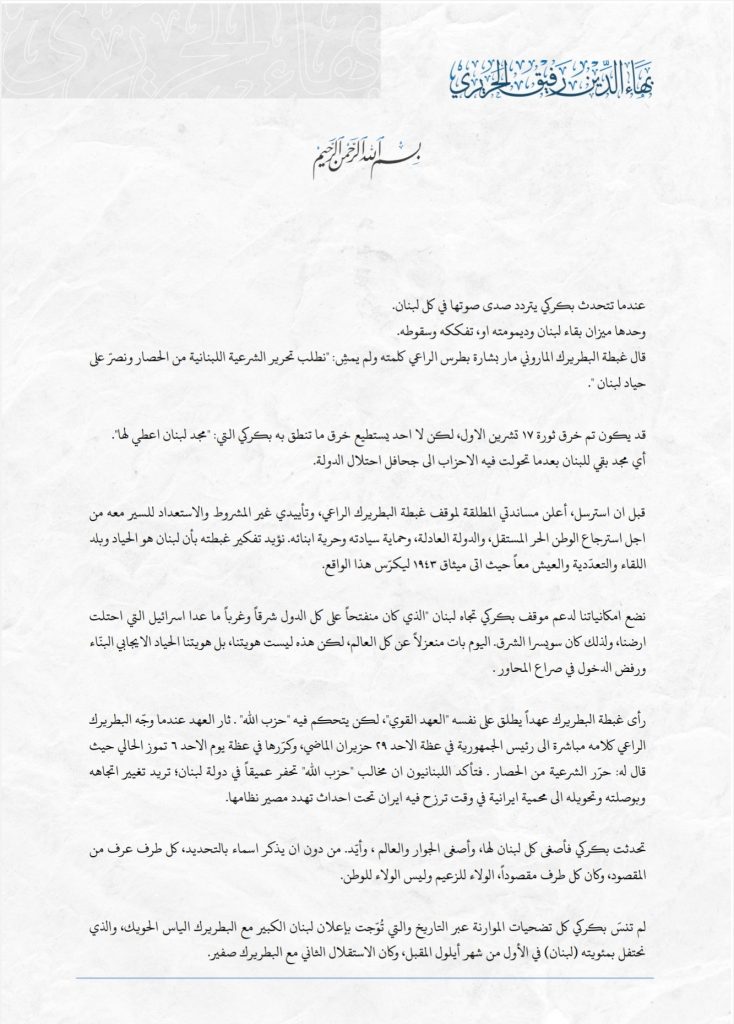 بهاء الدين رفيق الحريري
بسم الله الرحمن الرحيم
عندما تتحدث بكركي يتردد صدى صوتها في كل لبنان.
وحدها ميزان بقاء لبنان وديمومته او، تفككه وسقوطه.
قال غبطة البطريرك الماروني مار بشارة بطرس الراعي كلمته ولم يمشِ: "نطلب تحرير الشرعية اللبنانية من الحصار ونصرّ على
حياد لبنان ".
قد يكون تم خرق ثورة ١٧ تشرين الاول، لكن لا احد يستطيع خرق ما تنطق به بكركي التي: "مجد لبنان اعطي لها".
أي مجد بقي للبنان بعدما تحولت فيه الاحزاب الى جحافل احتلال الدولة.
قبل ان استرسل، أعلن مساندتي المطلقة لموقف غبطة البطريرك الراعي، وتأييدي غير المشروط والاستعداد للسير معه من
اجل استرجاع الوطن الحر المستقل، والدولة العادلة، وحماية سيادته وحرية ابنائه. نؤيد تفكير غبطته بأن لبنان هو الحياد وبلد
اللقاء والتعدّدية والعيش معاً حيث اتى ميثاق ١٩٤٣ ليكرّس هذا الواقع.
نضع امكانياتنا لدعم موقف بكركي تجاه لبنان "الذي كان منفتحاً على كل الدول شرقاً وغرباً ما عدا اسرائيل التي احتلت
ارضنا، ولذلك كان سويسرا الشرق. اليوم بات منعزلاً عن كل العالم، لكن هذه ليست هويتنا، بل هويتنا الحياد الايجابي البنّاء
ورفض الدخول في صراع المحاور .
رأى غبطة البطريرك عهداً يطلق على نفسه "العهد القوي"، لكن يتحكم فيه "حزب الله" . ثار العهد عندما وجّه البطريرك
الراعي كلامه مباشرة الى رئيس الجمهورية في عظة الاحد ٢٩ حزيران الماضي، وكرّرها في عظة يوم الاحد ٦ تموز الحالي حيث
قال له: حرّر الشرعية من الحصار . فتأكد اللبنانيون ان مخالب "حزب الله" تحفر عميقاً في دولة لبنان؛ تريد تغيير اتجاهه
وبوصلته وتحويله الى محمية ايرانية في وقت ترزح فيه ايران تحت احداث تهدد مصير نظامها.
تحدثت بكركي فأصغى كل لبنان لها، وأصغى الجوار والعالم ، وأيّد. من دون ان يذكر اسماء بالتحديد، كل طرف عرف من
المقصود، وكان كل طرف مقصوداً، الولاء للزعيم وليس الولاء للوطن.
لم تنسَ بكركي كل تضحيات الموارنة عبر التاريخ والتي تُوّجت بإعلان لبنان الكبير مع البطريرك الياس الحويك، والذي
نحتفل بمئويته (لبنان) في الأول من شهر أيلول المقبل، وكان الاستقلال الثاني مع البطريرك صفير.